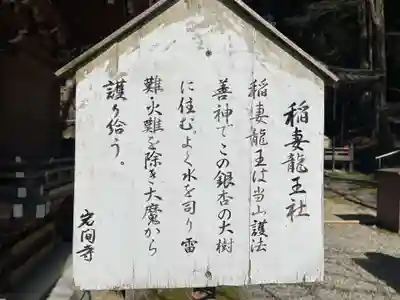 稲妻龍王社
稲妻龍王は当山護法
善神でこの銀杏の大樹
に住む。よく水を司り雷
難火難を除き天魔から
護り給う。
岩间寺